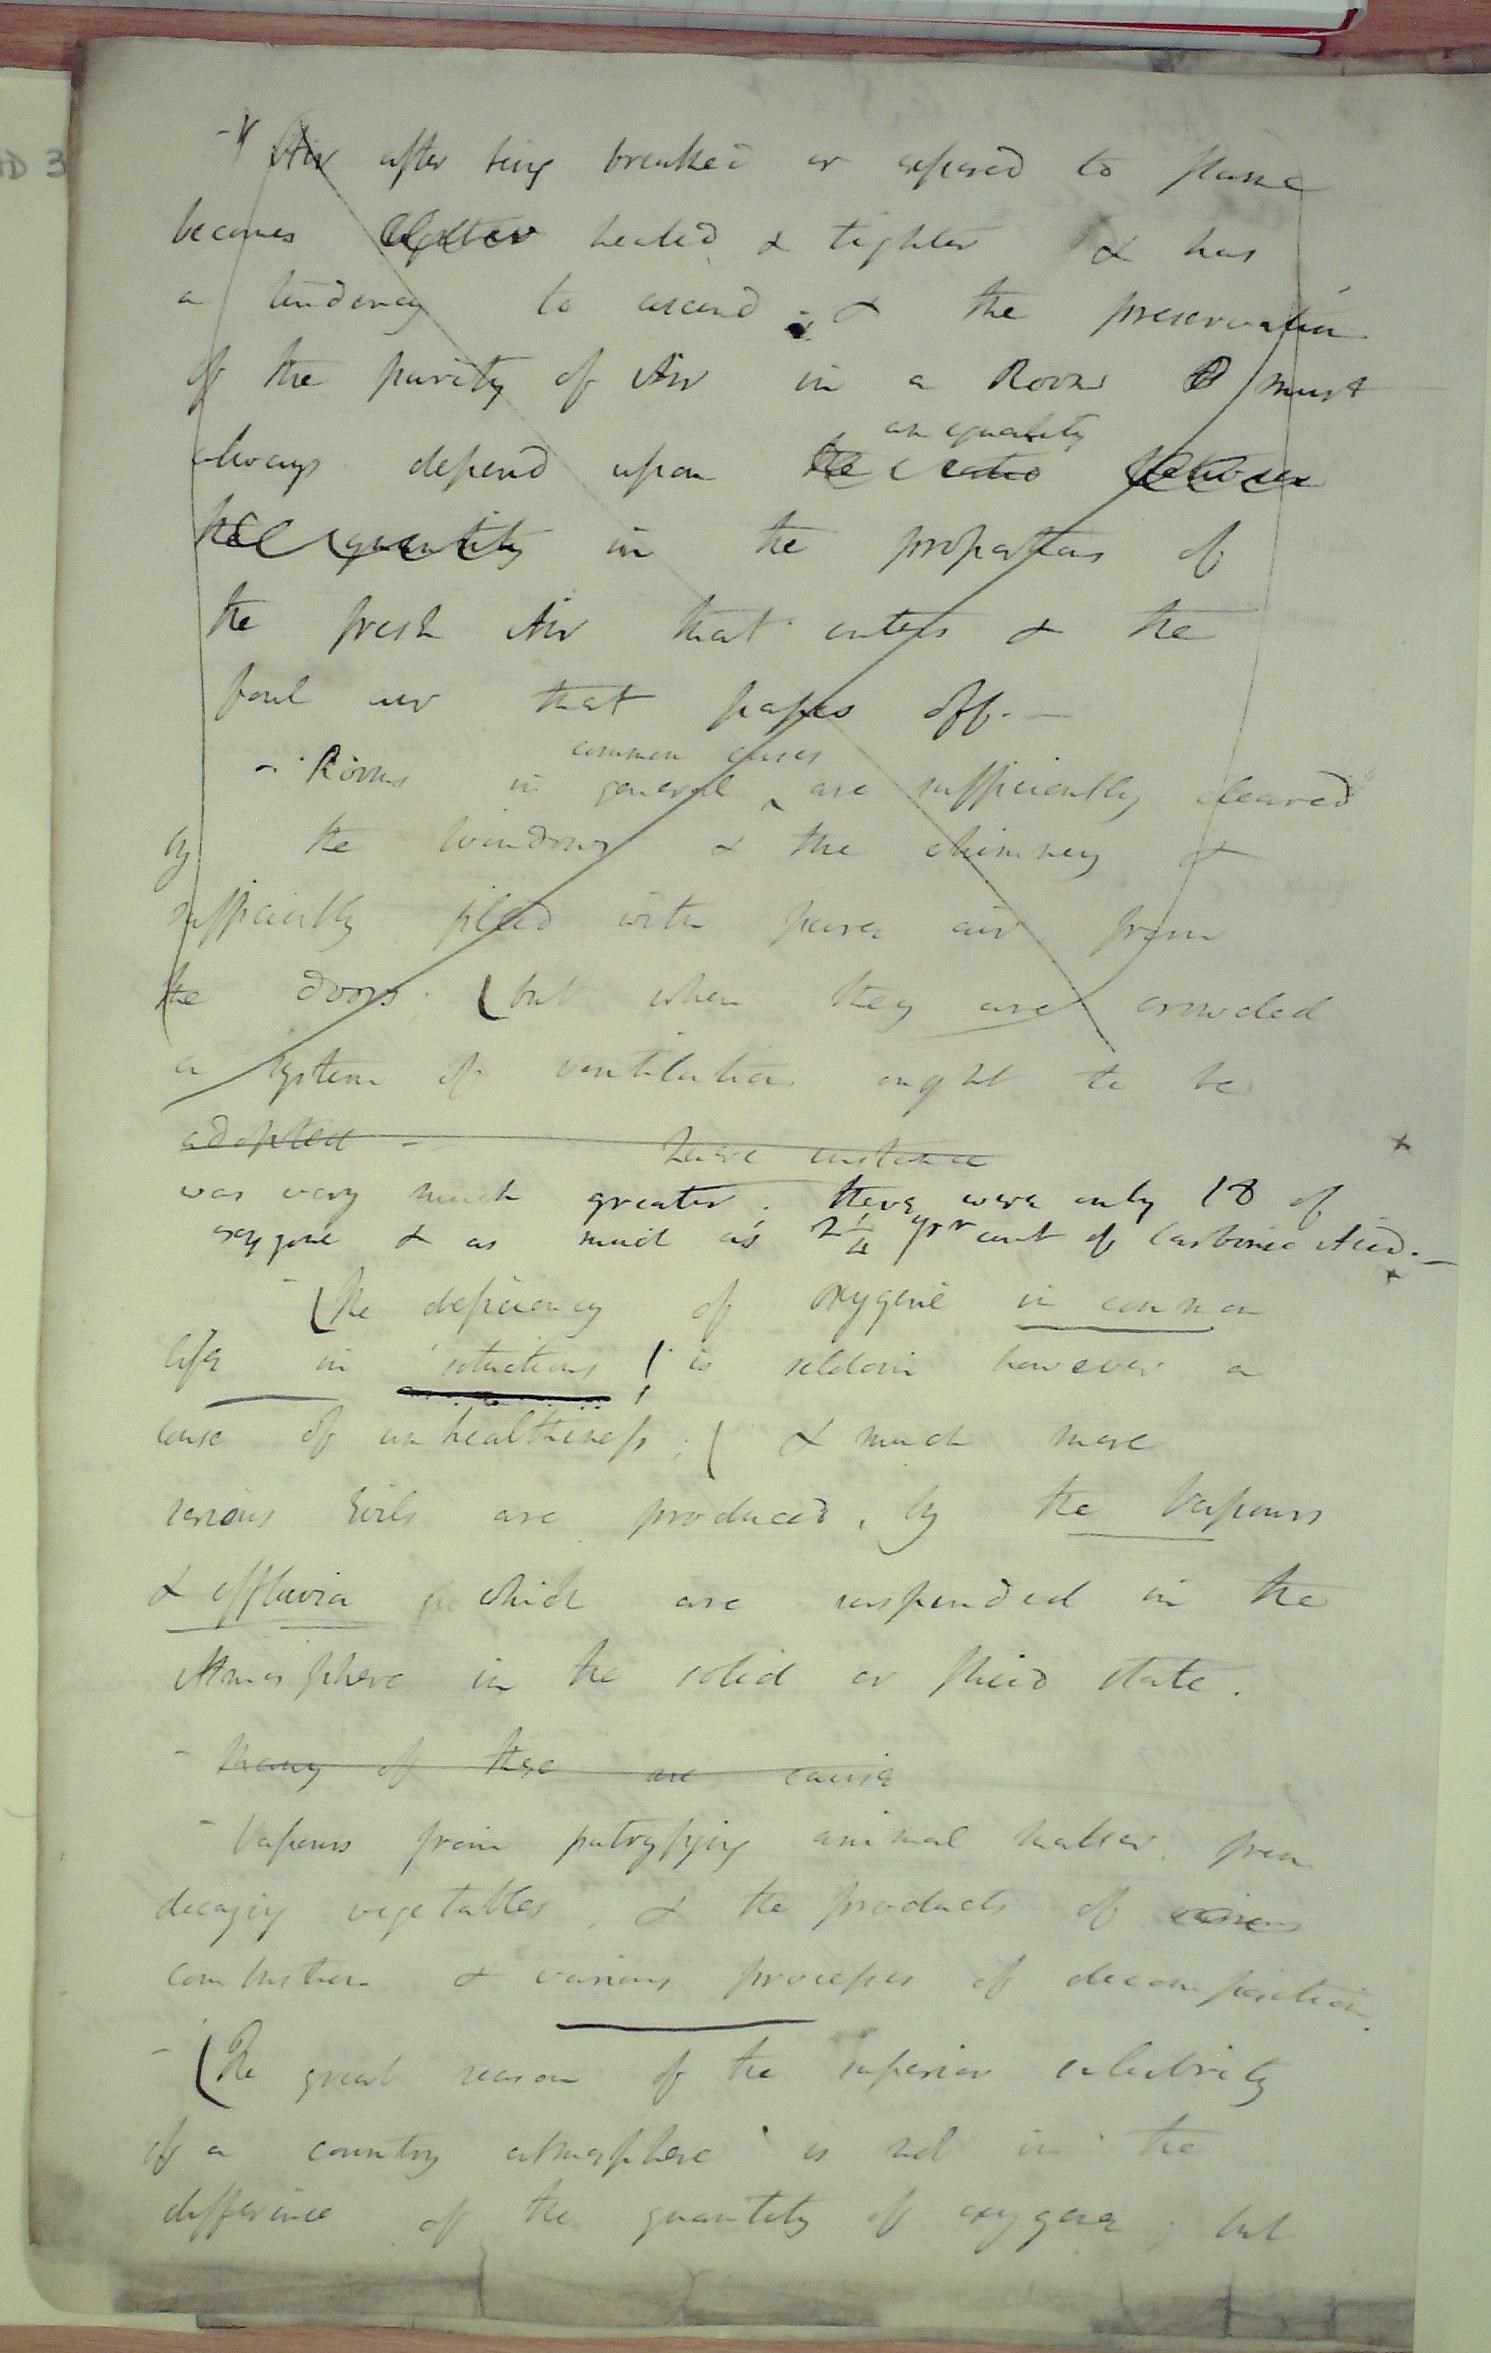 - Air after being breathed or exposed to flame
becomes lighter heated & lighter & has
a tendency to ascend; & the preservation
of the purity of Air in a Room must
an equality
always depend upon the ratio between
the quantity in the proportions of
the fresh Air that enters & the
foul air that passes off. —
common cases
- Rooms in general are sufficiently cleared
by the windows & the chimney &
sufficiently filled with pure air from
the doors. (but when they are crowded
a system of ventilation ought to be
adopted -
was very much greater. there were only 18 of
oxygene & as much as 2 1/4 per cent of Carbonic Acid. —
- (The deficiency of oxygene in common
life in situations is seldom however a
cause of unhealthiness; ( & much more
serious Evils are produced, by the Vapours
& effluvia which are suspended in the
Atmosphere in the solid or fluid state.
- Many of these are cause
- Vapours from putrefying animal matter. from
decaying vegetables, & the products of various
combustion & various processes of decomposition.
- (The great reason of the superior salubrity
of a country atmosphere is not in the
difference of the quantity of oxygene; but